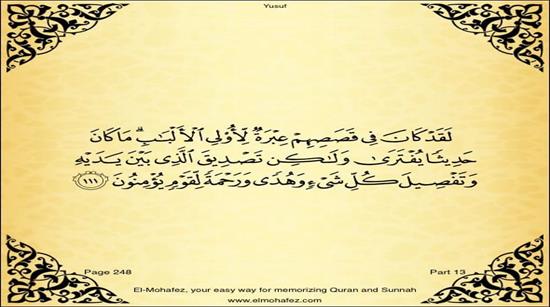 Yusuf
لَقَدْ كَانَ فِي قَصَصِهِمْ عِبْرَةٌ لِّأُولِي الْأَلْبَابِ ۗ مَا كَانَ
حَدِيثًا يُفْتَرَىٰ وَلَٰكِن تَصْدِيقَ الَّذِي بَيْنَ يَدَيْهِ
وَتَفْصِيلَ كُلِّ شَيْءٍ وَهُدًى وَرَحْمَةً لِّقَوْمٍ يُؤْمِنُونَ ﴿١١١﴾
Page 248 Part 13
El-Mohafez, your easy way for memorizing Quran and Sunnah
www.elmohafez.com